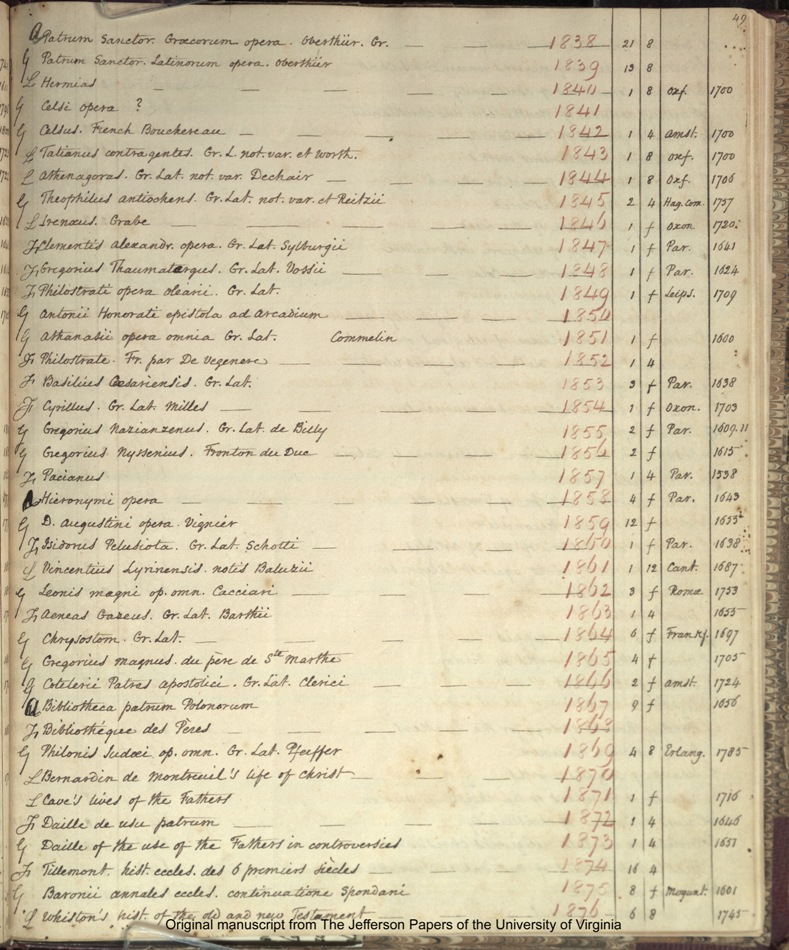 49
Patrum Sanctor. Graecorum opera. Oberthür. Gr. 1838 21 8
G Patrum Sanctor. Latinorum opera. Oberthür 1839 13 8
L Hermias 1840 1 8 Oxf. 1700
G Celsi opera ? 1841
G Celsus. French Bouchereau 1842 1 4 Amst. 1700
L Tatianus contra gentes. Gr. L. not. var. et Worth. 1843 1 8 Oxf. 1700
L Athenagoras. Gr. Lat. not. var. Dechair 1844 1 8 Oxf. 1706
G Theophilius antiochens. Gr. Lat. not. var. et Reitzii 1845 2 4 Hag. Com. 1757
L Irenaeus. Grabe 1846 1 f Oxon 1720.
F Clementis Alexandr. opera. Gr. Lat. Sylburgii 1847 1 f Par. 1641
F Gregorius Thaumatargus. Gr. Lat. Vossii 1848 1 f Par. 1624
F Philostrati opera olearii. Gr. Lat. 1849 1 f Leips. 1709
G Antonii Honorati epistola ad Arcadium 1850
G Athanasii opera omnia Gr. Lat. Commelin 1851 1 f 1600
F Philostrate. Fr. par De Vegenere 1852 1 4
F Basilius Caesariensis. Gr. Lat. 1853 3 f Par. 1638
F Cyrillus. Gr. Lat. Milles 1854 1 f Oxon. 1703
G Gregorius Nazianzenus. Gr. Lat. de Billy 1855 2 f Par. 1609.11
G Gregorius Nyssenius. Fronton du Duc 1856 2 f 1615
F Pacianus 1857 1 4 Par. 1538
Hieronymi opera 1858 4 f Par. 1643
G D. Augustini opera. Vignier 1859 12 f 1655
F Isidorus Pelusiota. Gr. Lat. Schotti 1860 1 f Par. 1638
L Vincentius Lyrinensis. notis Baluzii 1861 1 12 Cant. 1687
G Leonis magni op. omn. Cacciari 1862 3 f Romae 1753
F Aeneas Gazeus. Gr. Lat. Barthii 1863 1 4 1655
G Chrysostom. Gr. Lat. 1864 6 f Frankf. 1697
G Gregorius magnus. du père de Ste Marthe 1865 4 f 1705
G Cotelerii Patres apostolici. Gr. Lat. Clerici 1866 2 f Amst. 1724
Bibliotheca patrum Polonorum 1867 9 f 1656
F Bibliothéque des Pères 1868
G Philonis Judaei op. omn. Gr. Lat. Pfeiffer 1869 4 8 Erlang. 1785
L Bernardin de Montreuil's life of Christ 1870
L Cave's lives of the Fathers 1871 1 f 1716
F Daille de usu patrum 1872 1 4 1646
G Daille of the use of the Fathers in controversies 1873 1 4 1651
F Tillemont. hist. eccles. des 6 premiers siècles 1874 16 4
G Baronii annales eccles. continuatione Spondani 1875 8 f Mogunt. 1601
L Whiston's hist. of the old and new Testament 1876 6 8 1745
Original manuscript from The Jefferson Papers of the University of Virginia